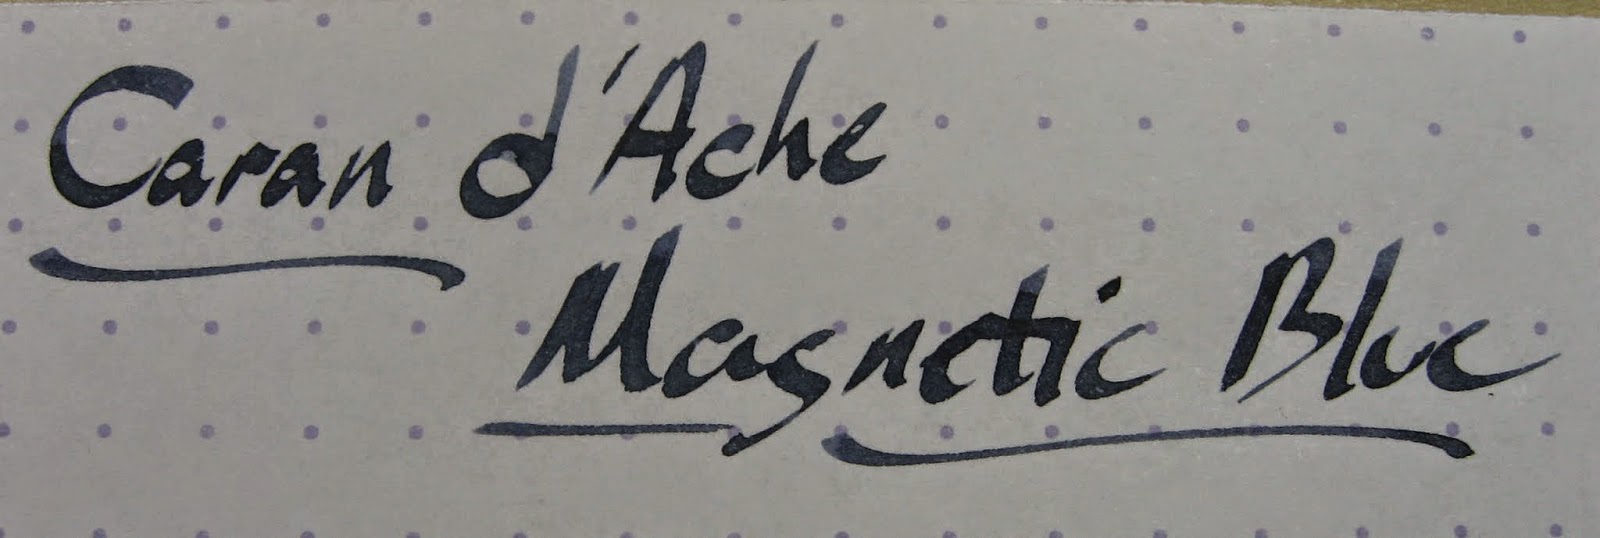 Caran d'Ache
Magnetic Blue